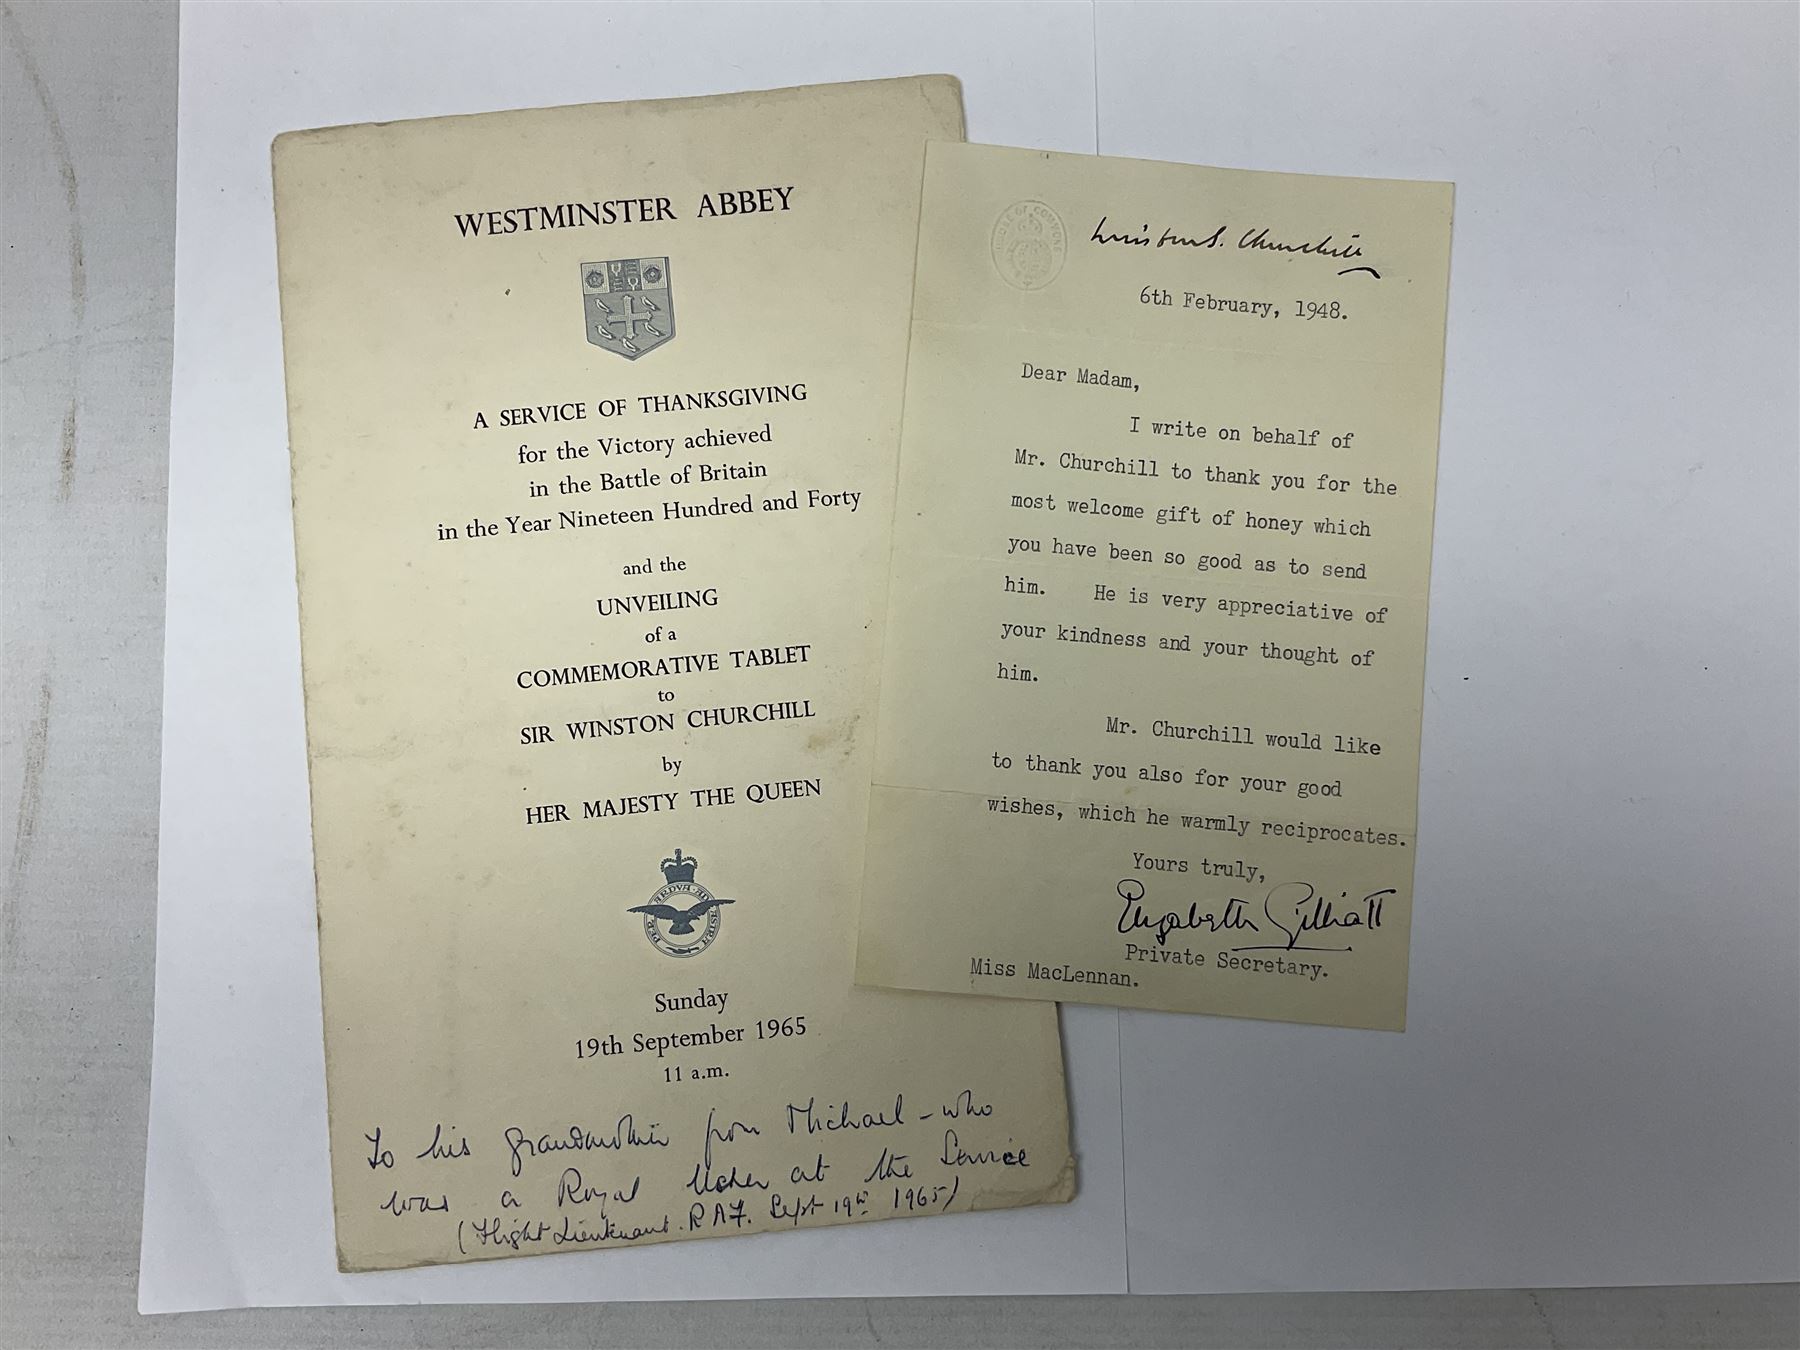 WESTMINSTER ABBEY
A SERVICE OF THANKSGIVING
for the Victory achieved
in the Battle of Britain
in the Year Nineteen Hundred and Forty
and the
UNVEILING
of a
COMMEMORATIVE TABLET
to
SIR WINSTON CHURCHILL
by
HER MAJESTY THE QUEEN
PER ARDVA AD ASTRA
Sunday
19th September 1965
11 a.m.
To his Grandmother from Michael - who
was a Royal Usher at the Service
(Flight Lieutenant. RAF. Sept 19th 1965)
HOUSE OF COMMONS
Winston S. Churchill
6th February, 1948.
Dear Madam,
I write on behalf of
Mr. Churchill to thank you for the
most welcome gift of honey which
you have been so good as to send
him. He is very appreciative of
your kindness and your thought of
him.
Mr. Churchill would like
to thank you also for your good
wishes, which he warmly reciprocates.
Yours truly,
Elizabeth Gilliatt
Private Secretary.
Miss MacLennan.